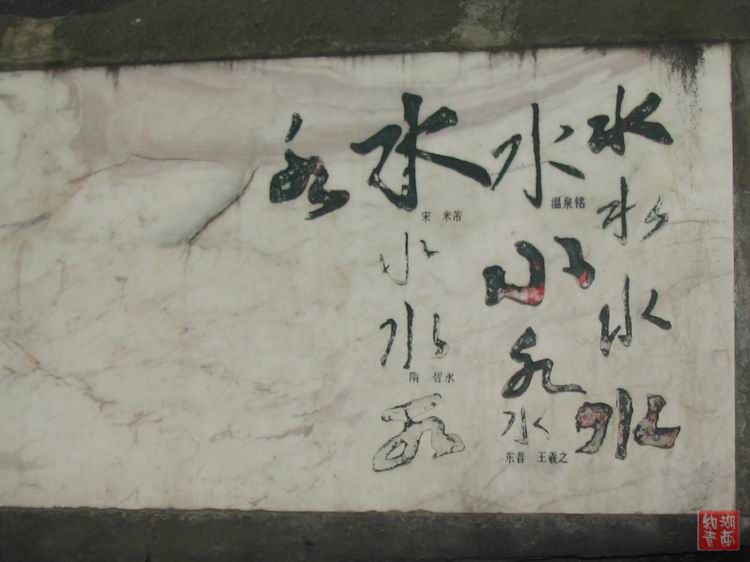 水
水
水
水
水
温泉铭
水
水
水
东晋 王羲之
水
宋 米芾
水
水
隋 智永
水
水
湖南
知青